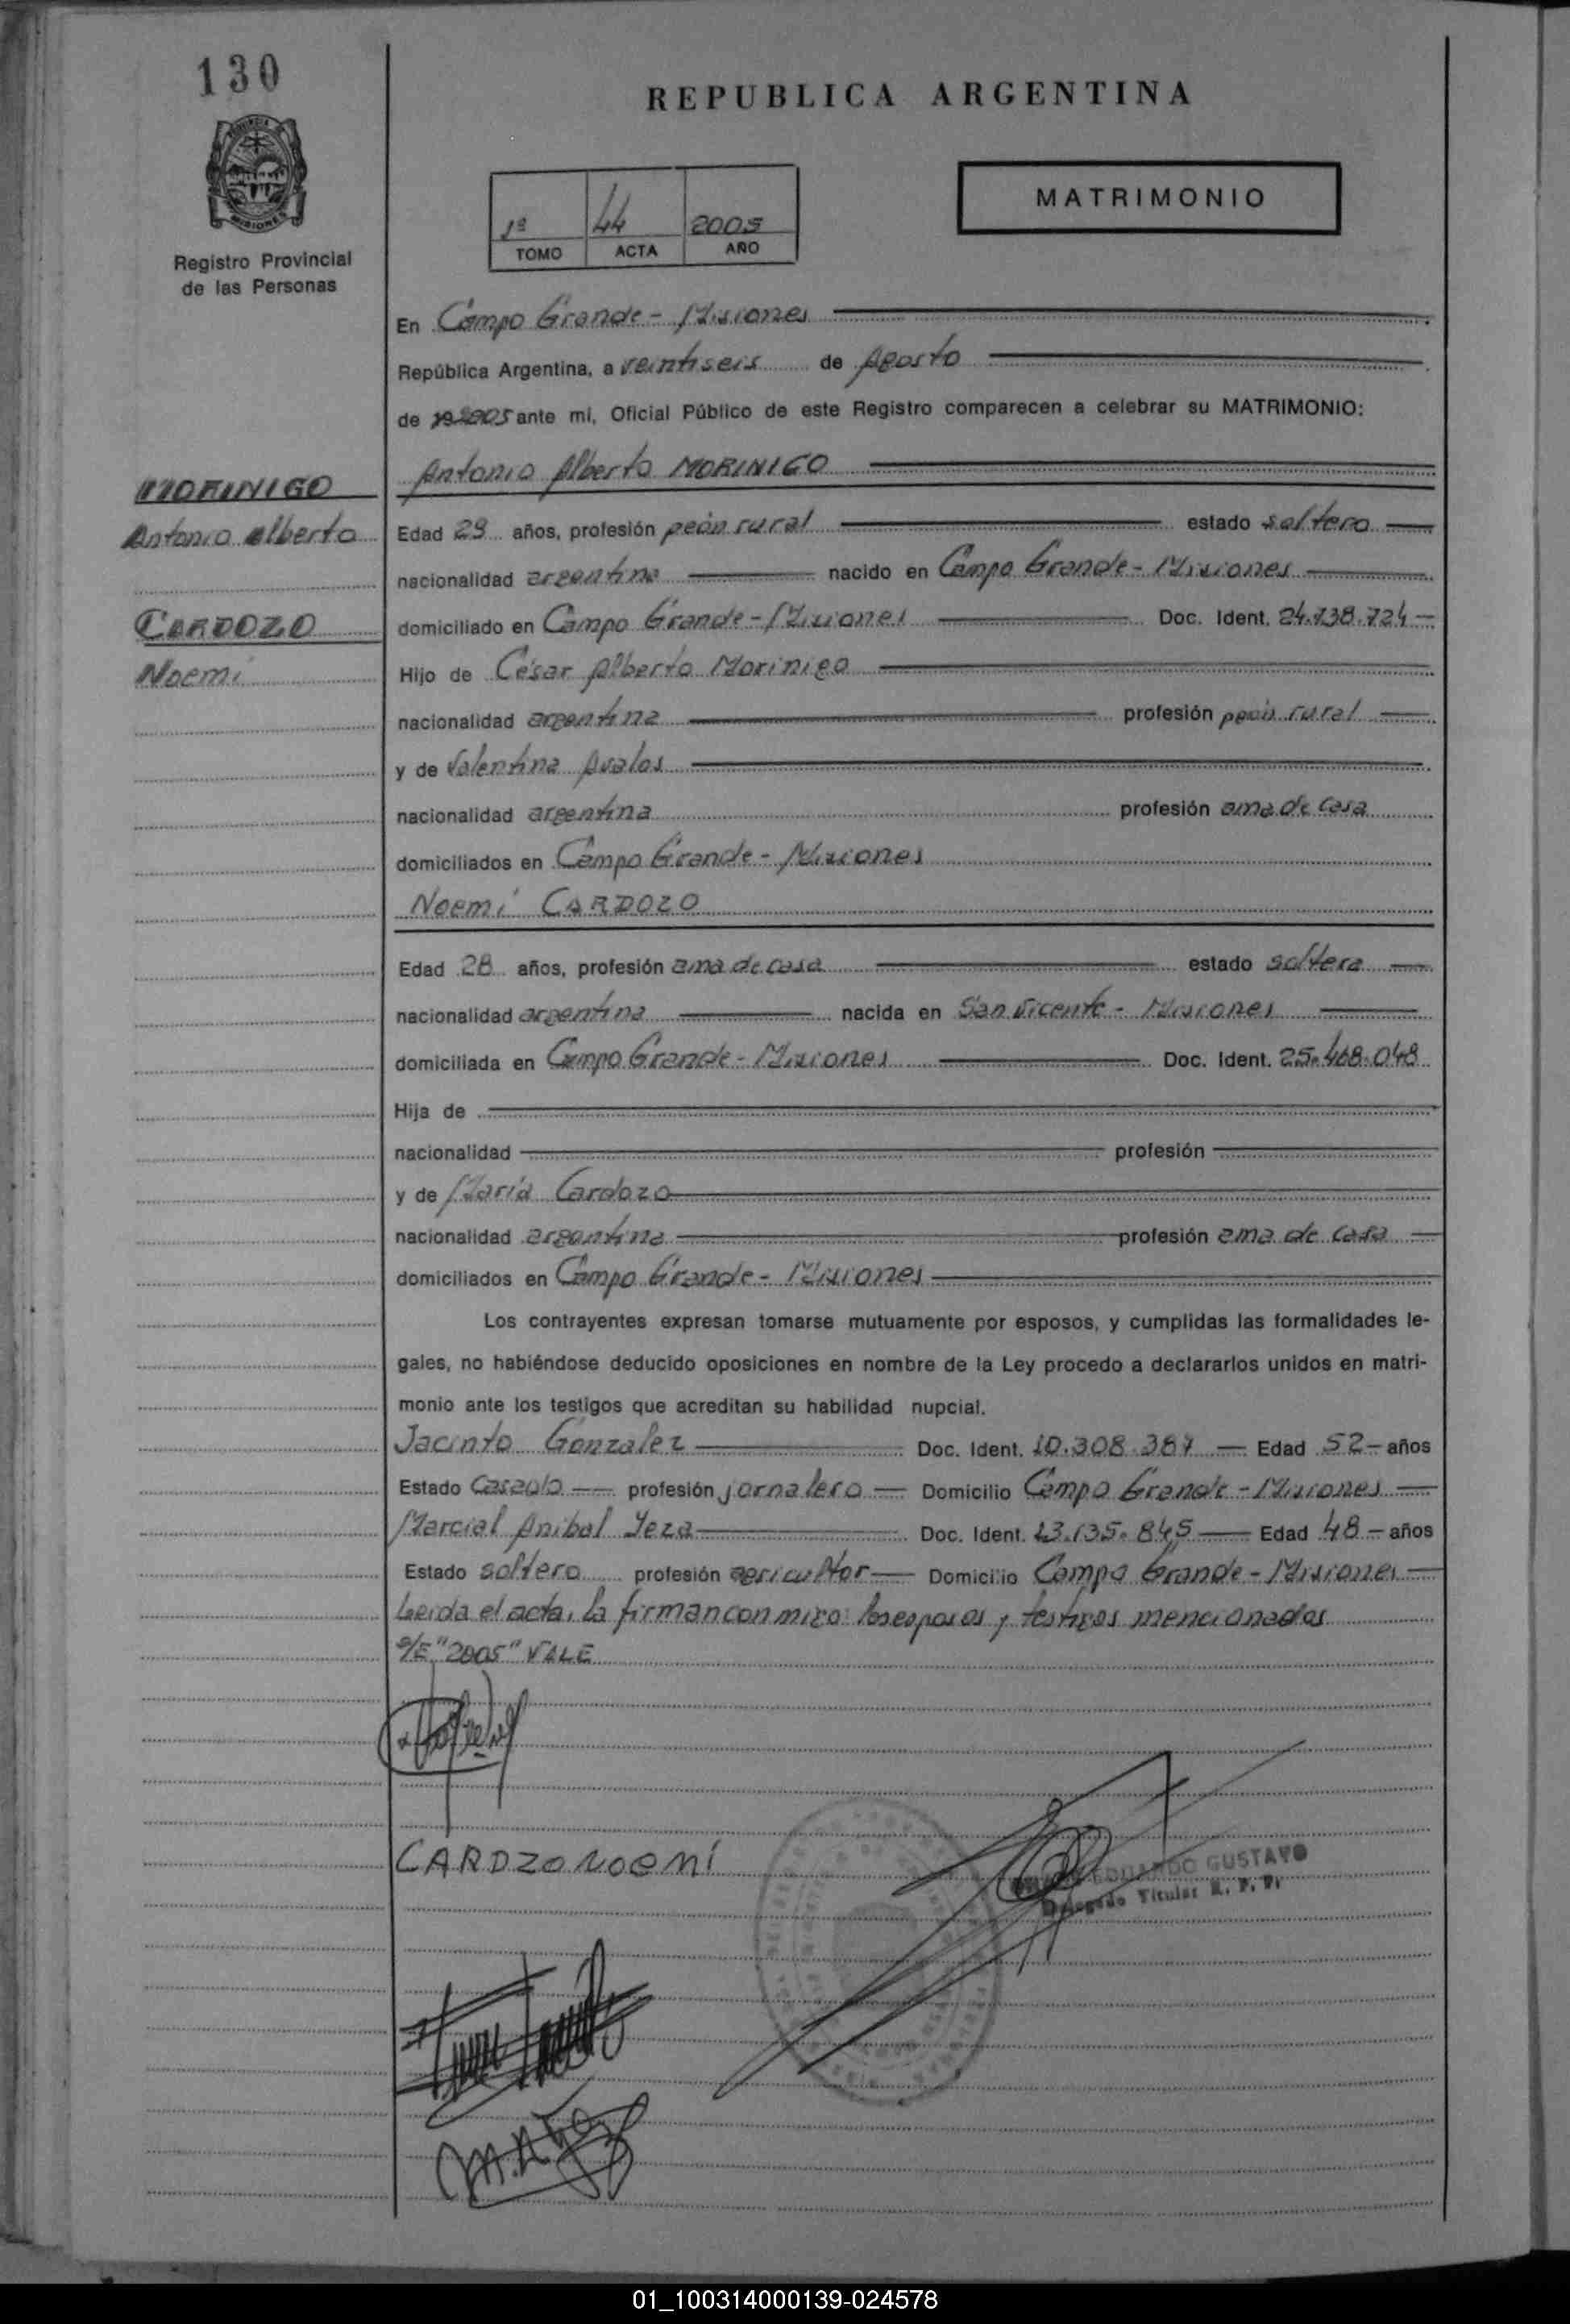 130
REPUBLICA ARGENTINA
MATRIMONIO
1º 44 2005
TOMO ACTA AÑO
Registro Provincial
de las Personas
En Campo Grande - Misiones
República Argentina, a veintiseis de Agosto
de 2005 ante mí, Oficial Público de este Registro comparecen a celebrar su MATRIMONIO:
MORINIGO
Antonio Alberto
CARDOZO
Noemí
Antonio Alberto MORINIGO
Edad 29 años, profesión peón rural estado soltero
nacionalidad argentina nacido en Campo Grande - Misiones
domiciliado en Campo Grande - Misiones Doc. Ident. 24.138.724
Hijo de César Alberto Morinigo
nacionalidad argentina profesión peón rural
y de Valentina Avalos
nacionalidad argentina profesión ama de casa
domiciliados en Campo Grande - Misiones
Noemí CARDOZO
Edad 28 años, profesión ama de casa estado soltera
nacionalidad argentina nacida en San Vicente - Misiones
domiciliada en Campo Grande - Misiones Doc. Ident. 25.468.048
Hija de
nacionalidad profesión
y de María Cardozo
nacionalidad argentina profesión ama de casa
domiciliados en Campo Grande - Misiones
Los contrayentes expresan tomarse mutuamente por esposos, y cumplidas las formalidades le-
gales, no habiéndose deducido oposiciones en nombre de la Ley procedo a declararlos unidos en matri-
monio ante los testigos que acreditan su habilidad nupcial.
Jacinto Gonzalez Doc. Ident. 10.308.387 Edad 52 - años
Estado Casado profesión jornalero Domicilio Campo Grande - Misiones
Marcial Anibal Yeza Doc. Ident. 13.135.845 Edad 48 - años
Estado soltero profesión agricultor Domicilio Campo Grande - Misiones
Leída el acta, la firman conmigo los esposos y testigos mencionados
S/E "2005" VALE
CARDZO NOEMÍ
EDUARDO GUSTAVO
Delegado Titular R. P. P.
01_100314000139-024578